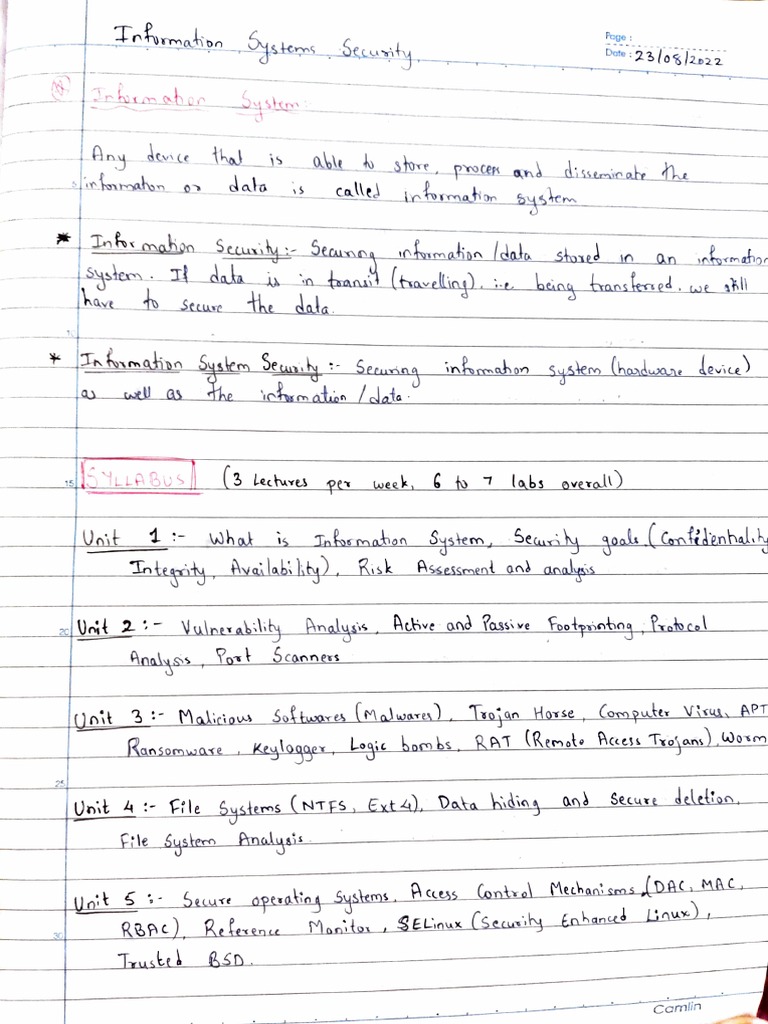 Information Systems Security.
Page :
Date : 23/08/2022
Information System:
Any device that is able to store, process and disseminate the
information or data is called information system
* Information Security :- Securing information/data stored in an information
system. If data is in transit (travelling). i.e. being transferred. we still
have to secure the data.
10
* Information System Security :- Securing information system (hardware device)
as well as the information/data.
15 SYLLABUS (3 Lectures per week, 6 to 7 labs overall)
Unit 1 :- What is Information System, Security goals (Confidentiality
Integrity, Availability), Risk Assessment and analysis
20 Unit 2 :- Vulnerability Analysis, Active and Passive Footprinting, Protocol
Analysis, Port Scanners
Unit 3 :- Malicious Softwares (Malwares), Trojan Horse, Computer Virus, APT
Ransomware, Keylogger, Logic bombs, RAT (Remote Access Trojans), Worm
25
Unit 4 :- File Systems (NTFS, Ext4), Data hiding and secure deletion,
File System Analysis.
Unit 5 :- Secure operating Systems, Access Control Mechanisms (DAC, MAC,
30 RBAC), Reference Monitor, SELinux (Security Enhanced Linux),
Trusted BSD.
Camlin